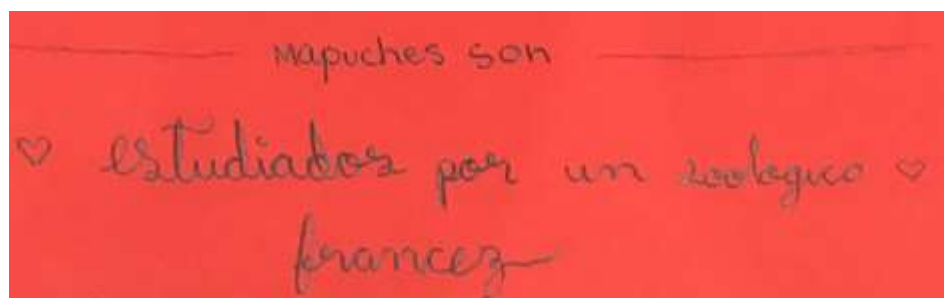 Mapuches son
estudiados por un zoologico
francez